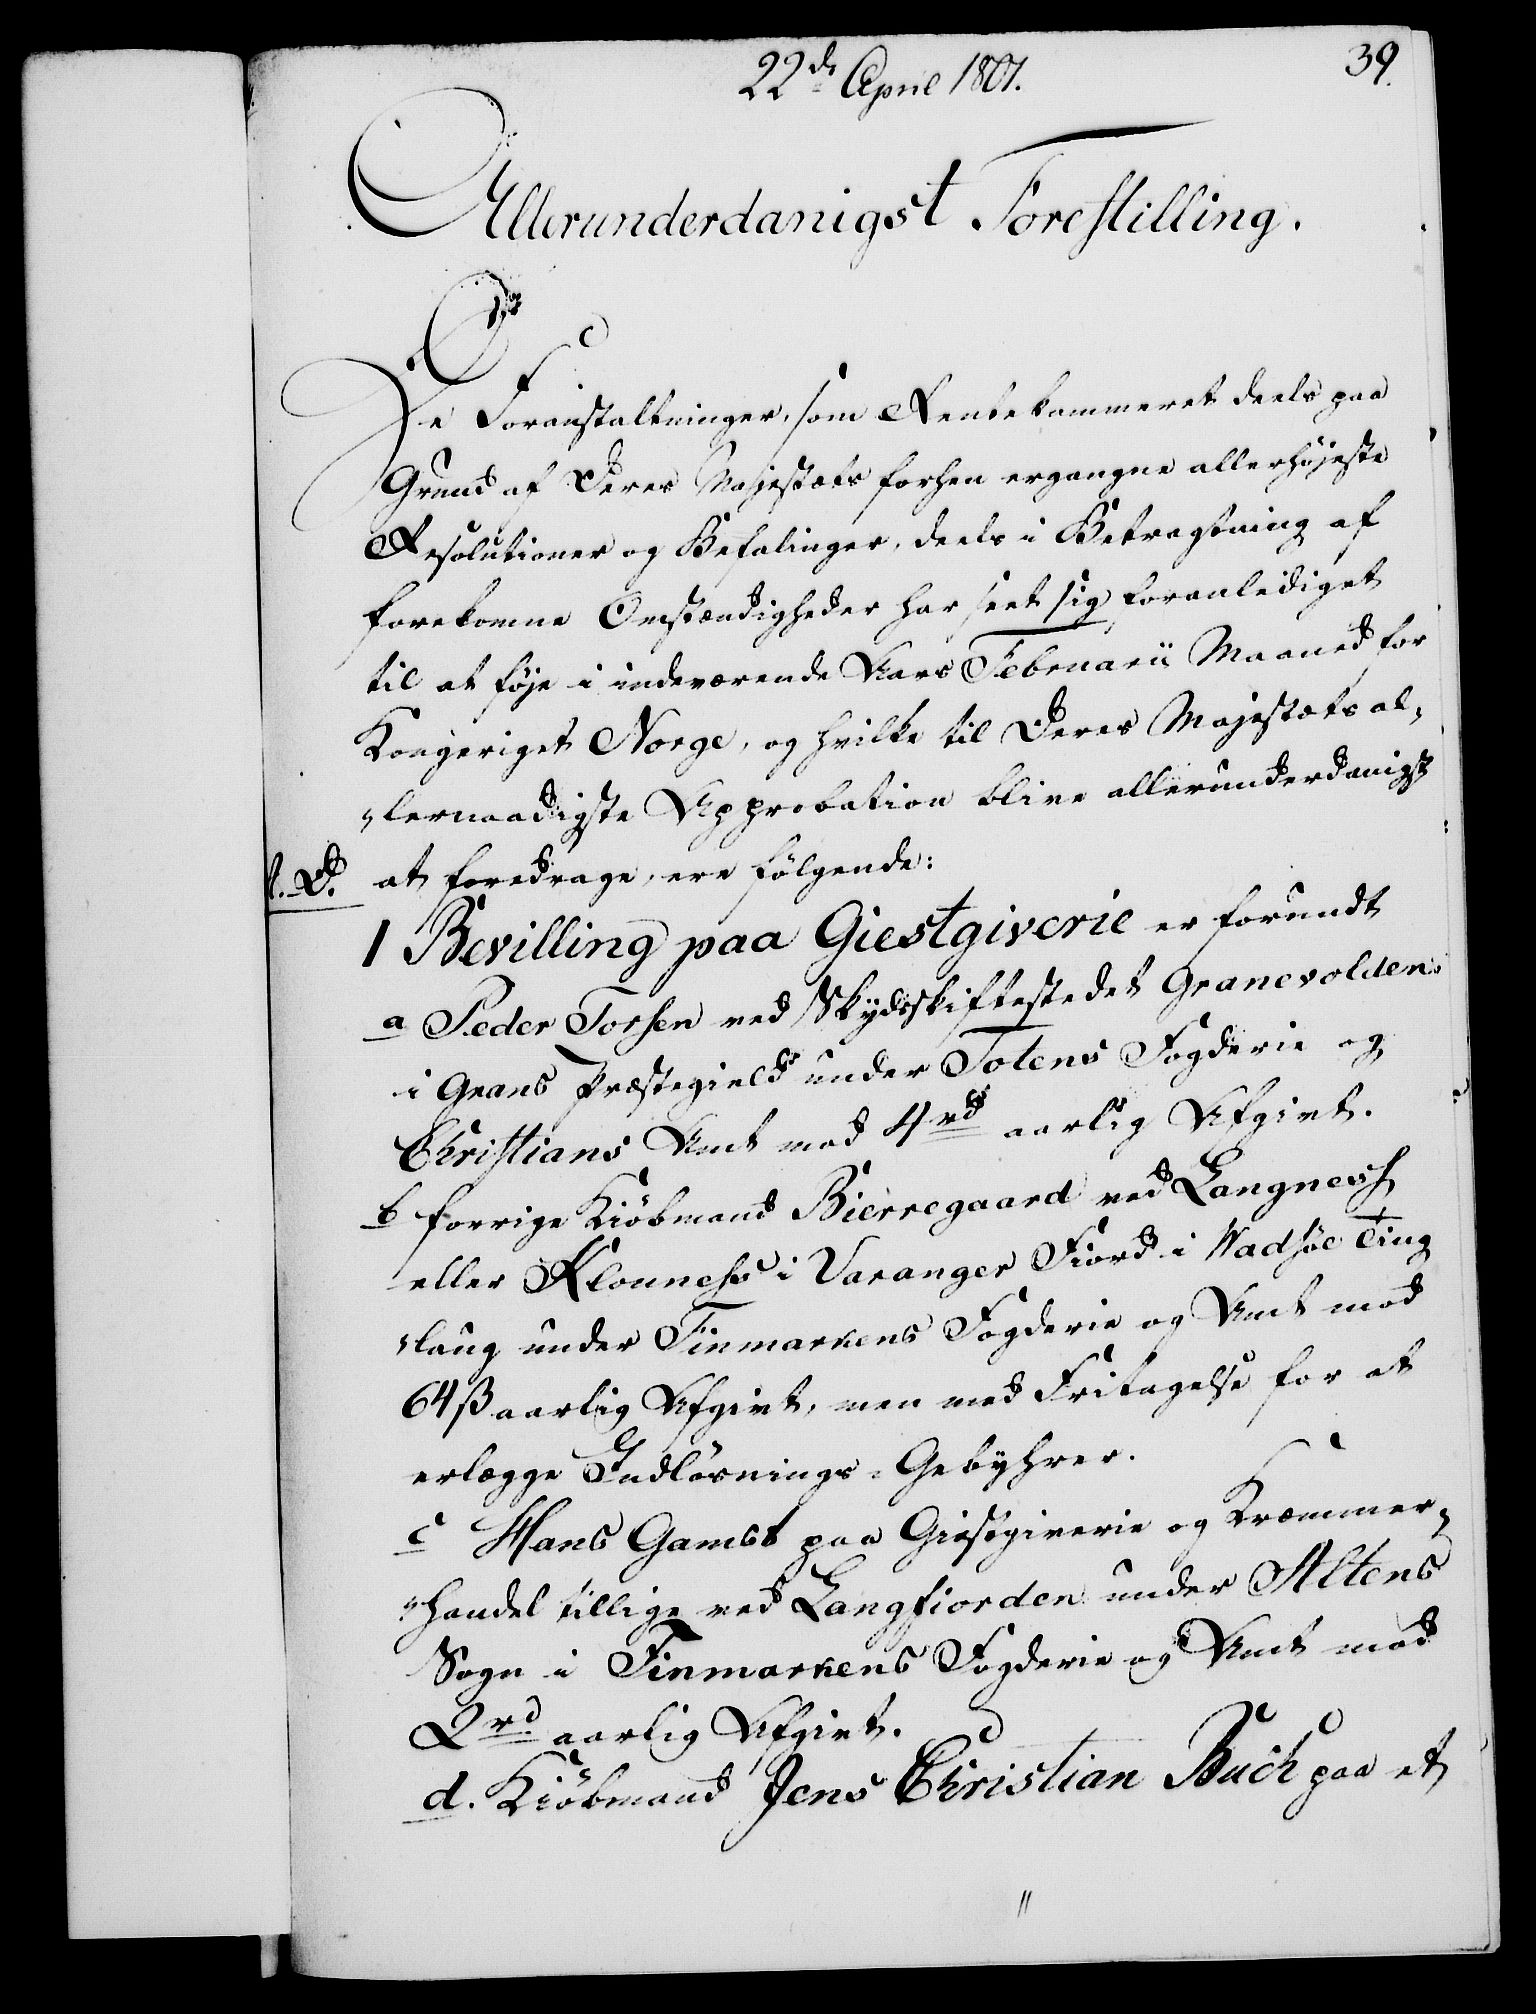 22de April 1801.
39.
Allerunderdanigst Forestilling.
De Foranstaltninger, som Rentekammeret deels paa
Grund af Deres Majestæts forhen ergangne allerhøjeste
Resolutioner og Befalinger, deels i Betragtning af
forekomne Omstændigheder har seet sig foranlediget
til at føje i indeværende Aars Februarii Maaned for
Kongeriget Norge, og hvilke til Deres Majestæts al-
lernaadigste Approbation blive allerunderdanigst
at foredrage, ere følgende:
1 Bevilling paa Giestgiverie er forundt
a Peder Torsen ved Skydsskiftestedet Granevolden
i Grans Præstegield under Totens Fogderie og
Christians Amt mod 4 rd aarlig Afgivt.
b forrige Kiøbmand Bierregaard ved Langness
eller Klonness i Varanger Fiord i Wadsøe Ting
laug under Finmarkens Fogderie og Amt mod
64 ß aarlig Afgivt, men med Fritagelse for at
erlægge Indløsnings-Gebyhrer.
c Hans Gamst paa Giestgiverie og Kræmmer-
handel tillige ved Langfiorden under Altens
Sogn i Finmarkens Fogderie og Amt mod
2 rd aarlig Afgivt.
d. Kiøbmand Jens Christian Buch paa et